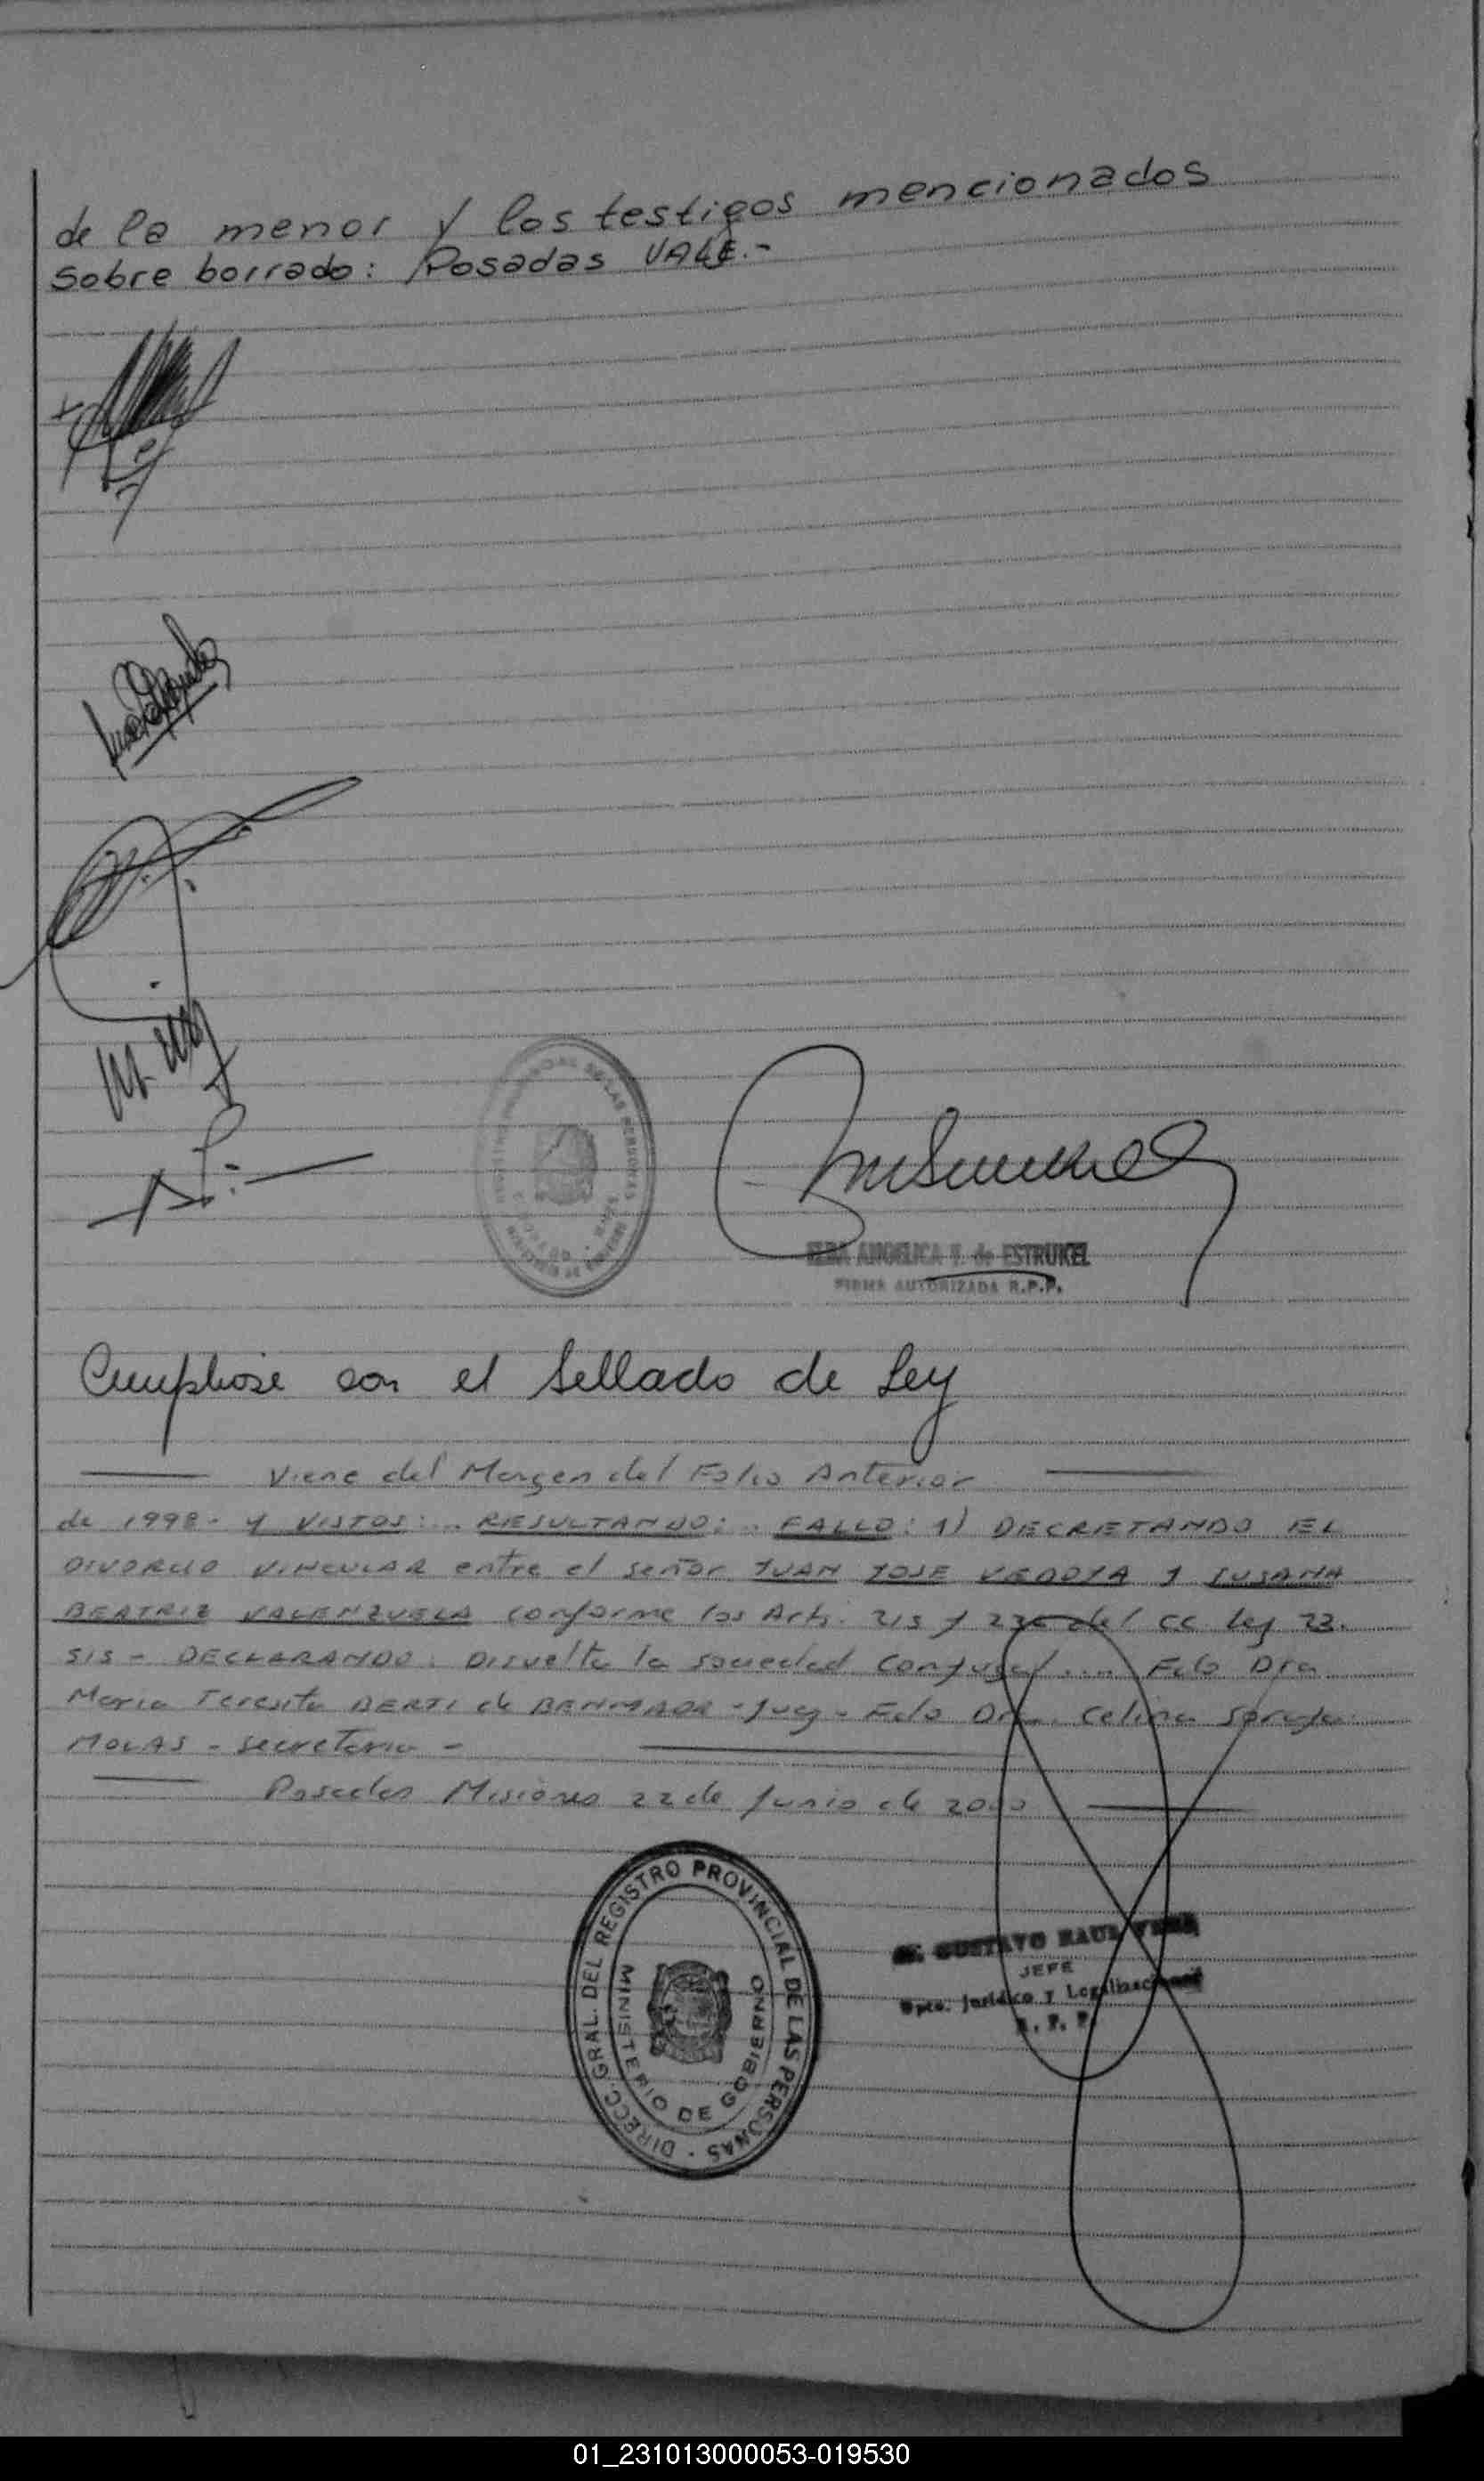 de la menor y los testigos mencionados
Sobre borrado: Posadas VALE.-
ELBA ANGELICA V. de ESTRUKEL
FIRMA AUTORIZADA R.P.P.
Cumplióse con el Sellado de Ley
Viene del Margen del Folio Anterior
de 1998- Y VISTOS: .. RESULTANDO: .. FALLO: 1) DECRETANDO EL
DIVORCIO VINCULAR entre el señor JUAN JOSE VEDOYA Y SUSANA
BEATRIZ VALENZUELA conforme los Arts. 213 y 236 del CC. Ley 23.
515 - DECLARANDO: Disuelta la sociedad Conyugal .... Fdo Dra
Maria Teresita BERTI de - Juez - Fdo Dra. Celina
MOLAS - Secretaria -
Posadas Misiones 22 de Junio de 2000
DIRECC. GRAL. DEL REGISTRO PROVINCIAL DE LAS PERSONAS -
MINISTERIO DE GOBIERNO
GUSTAVO RAUL VERA
JEFE
Dpto. Jurídico y Legalizaciones
R. P. P.
01_231013000053-019530